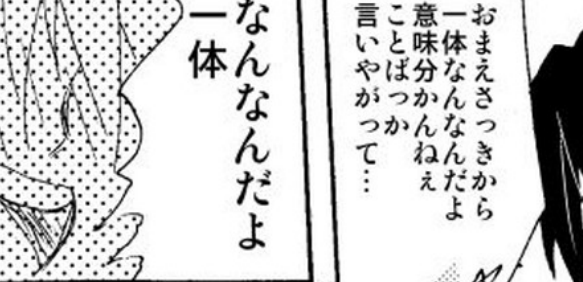 おまえさっきから
一体なんなんだよ
意味分かんねぇ
ことばっか
言いやがって…
一体
なんなんだよ